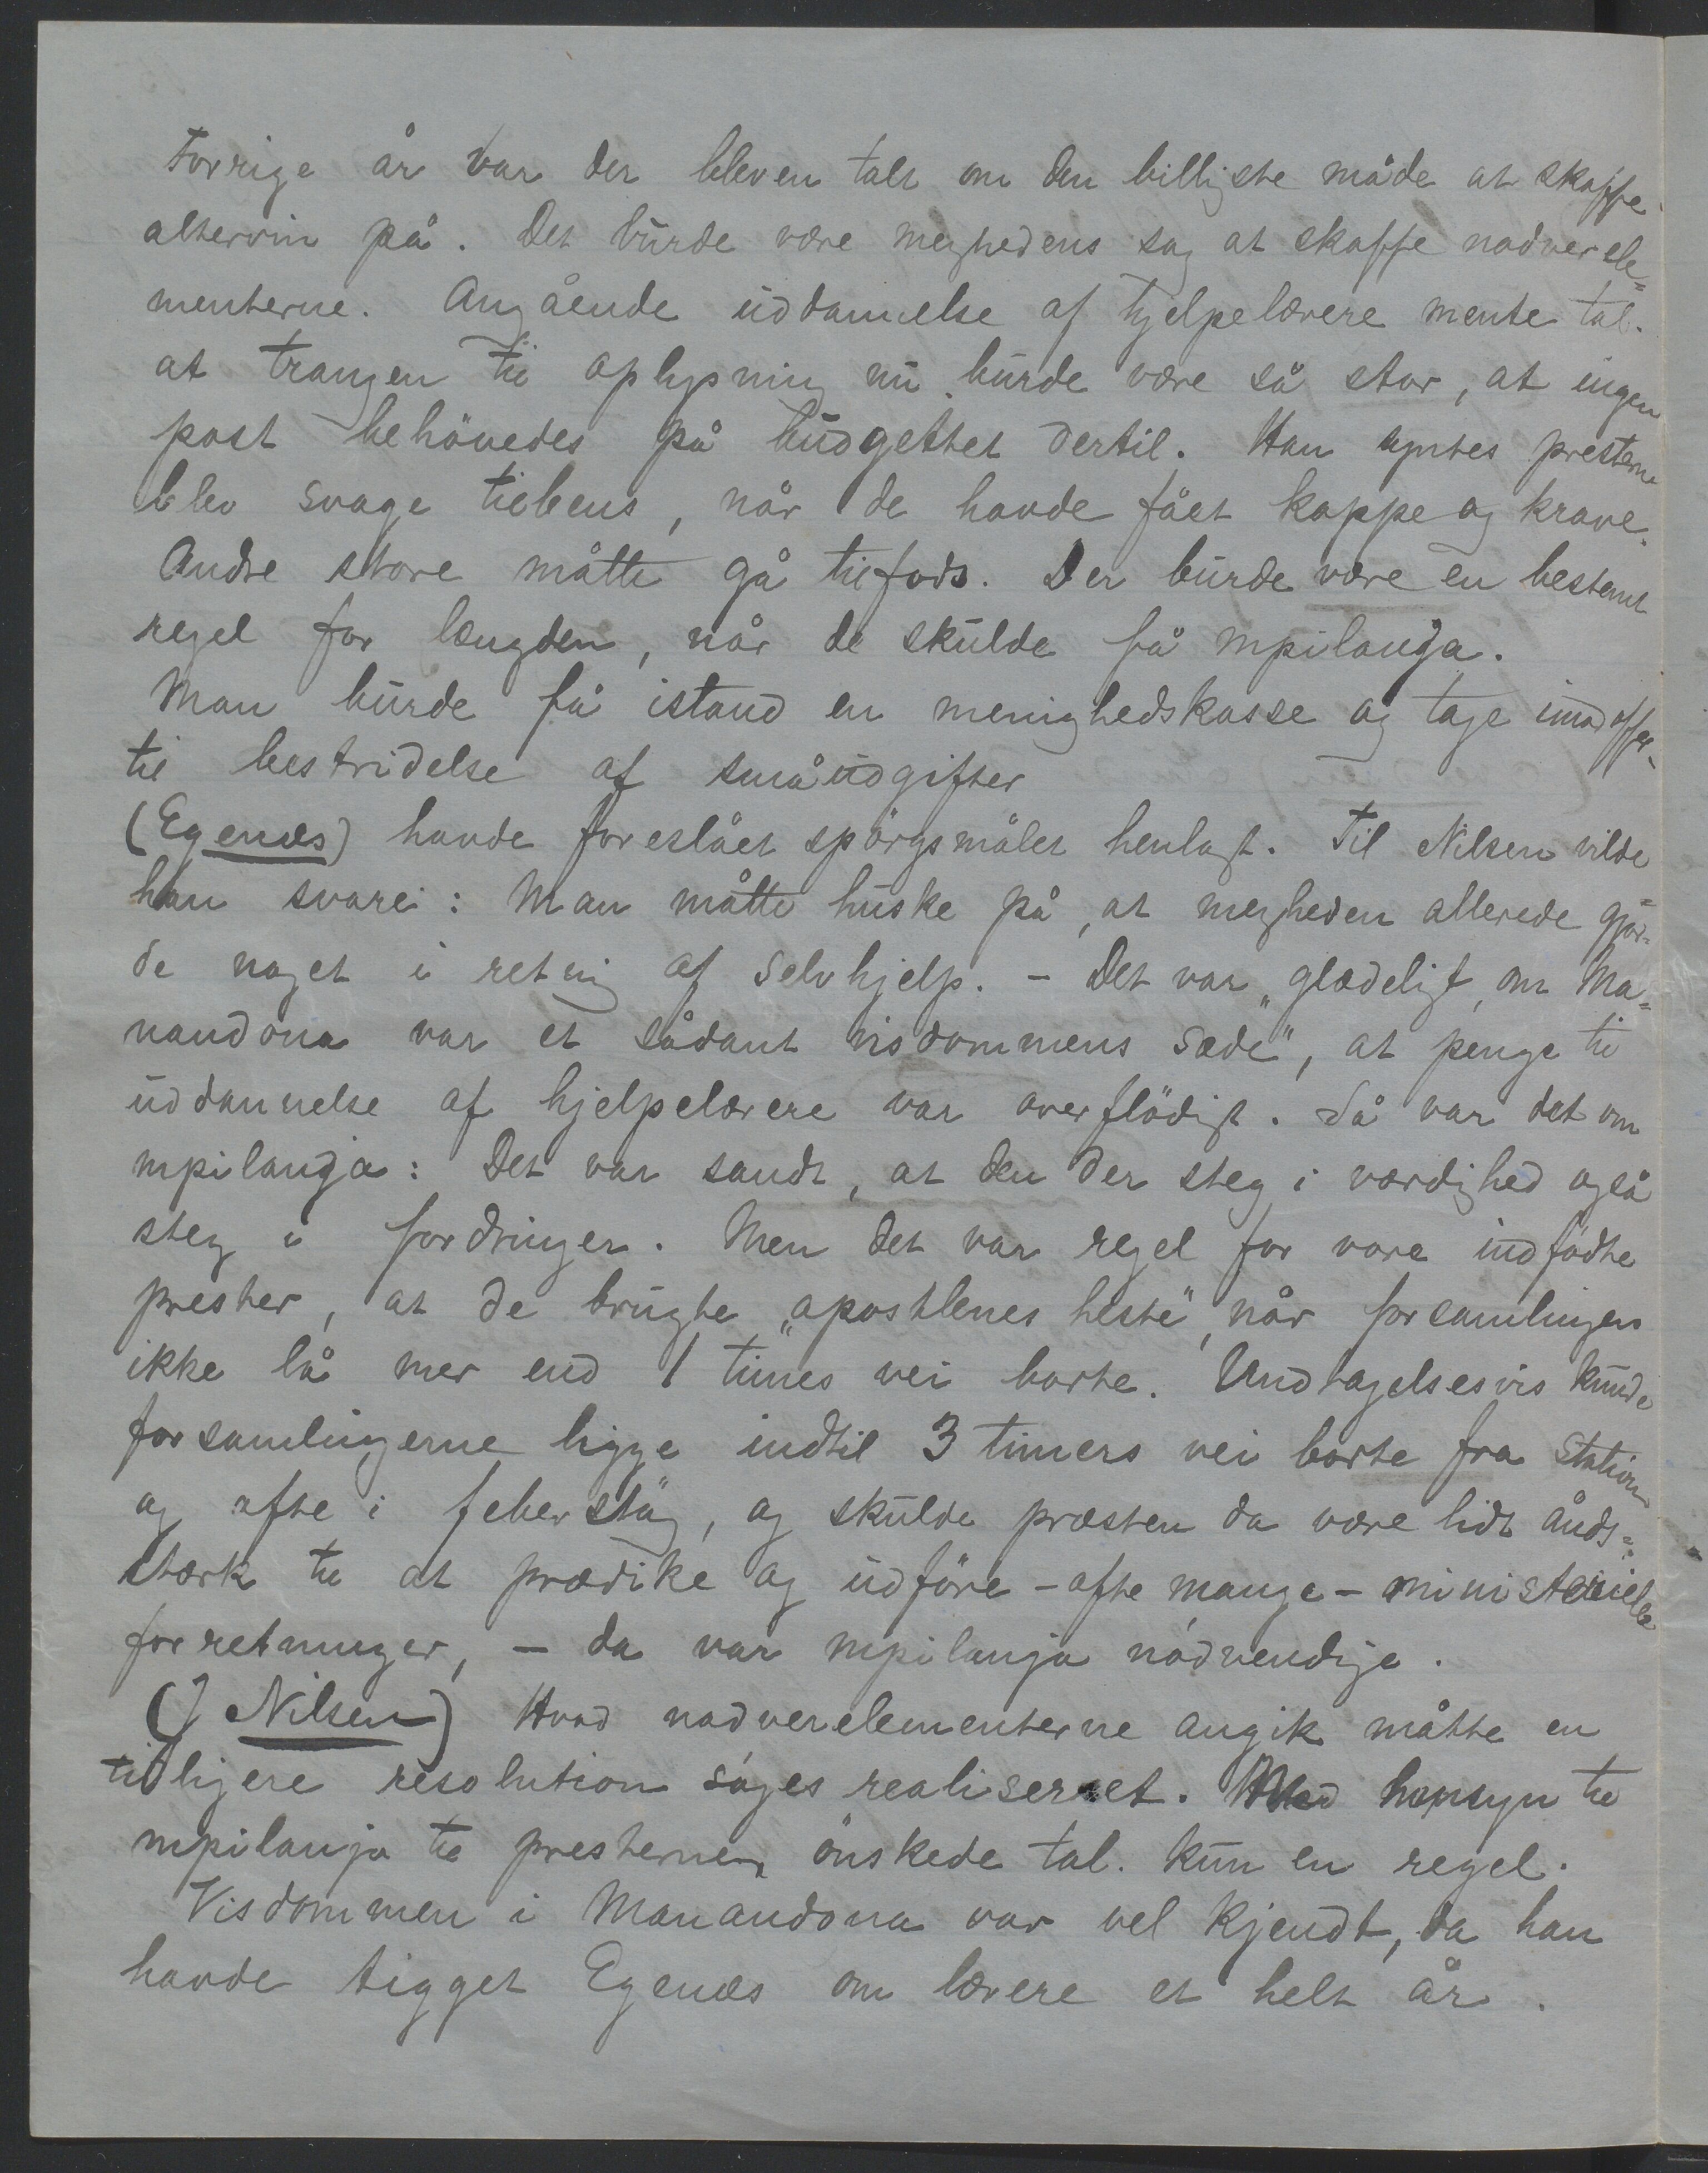 Forrige år var der bleven talt om den billigste måde at skaffe
altervin på. Det burde være meghedens sag at skaffe nadverele=
menterne. Angående uddannelse af hjelpelærere mente tal.
at trangen til oplysning nu burde være så stor, at ingen
post behövedes på budgettet dertil. Han syntes presterne
blev svage tilbens, når de havde fået kappe og krave.
Andre store måtte gå tilfods. Der burde være en bestemt
regel for længden, når de skulde få mpilanja.
Man burde få istand en menighedskasse og tage
til bestridelse af småudgifter
(Egenæs) havde foreslået spörgsmålet henlagt. Til Nilsen vilde
han svare: Man måtte huske på, at megheden allerede gjor=
de noget i retnig af selvhjelp. - Det var glædeligt, om Ma=
nandona var et sådant "visdommens sæde", at penge til
uddannelse af hjelpelærere var overflödigt. Så var det om
mpilanja: Det var sandt, at den der steg i værdighed også
steg i fordringer. Men det var regel for vore indfödte
prester, at de brugte "apostlenes heste", når forsamlingen
ikke lå mer end 1 times vei borte. Undtagelsesvis kunde
forsamlingerne ligge indtil 3 timers vei borte fra station
og ofte i feberströg, og skulde præsten da være lidt ånds=
stærk til at prædike og udföre - ofte mange - ministerielle
forretninger, - da var mpilanja nödvendige.
(J Nilsen) Hvad nadverelementerne angik måtte en
tidligere resolution söges realiseret. Med hensyn til
mpilanja til presterne, önskede tal. kun en regel.
Visdommen i Manandona var vel kjendt, da han
havde tigget Egenæs om lærere et helt år.